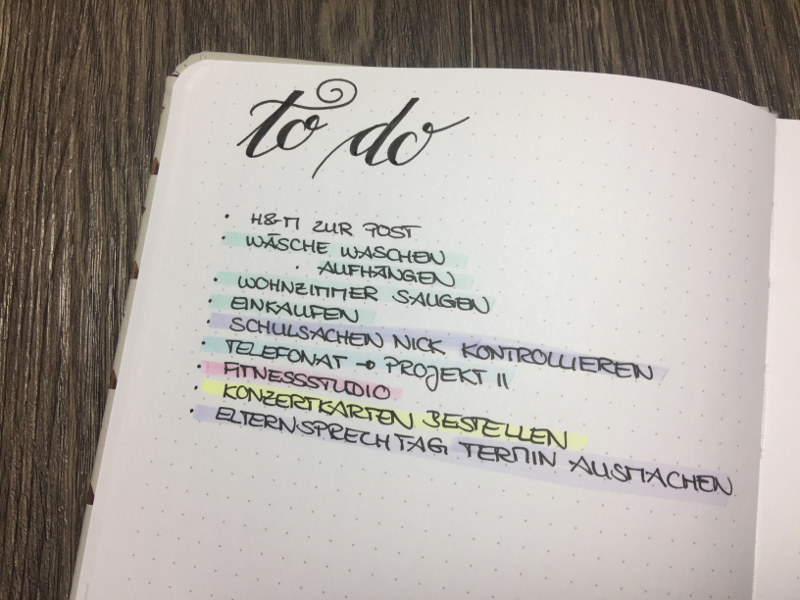 to do
• H&M ZUR POST
• WÄSCHE WASCHEN
• AUFHÄNGEN
• WOHNZIMMER SAUGEN
• EINKAUFEN
• SCHULSACHEN NICK KONTROLLIEREN
• TELEFONAT → PROJEKT II
• FITNESSSTUDIO
• KONZERTKARTEN BESTELLEN
• ELTERNSPRECHTAG TERMIN AUSMACHEN